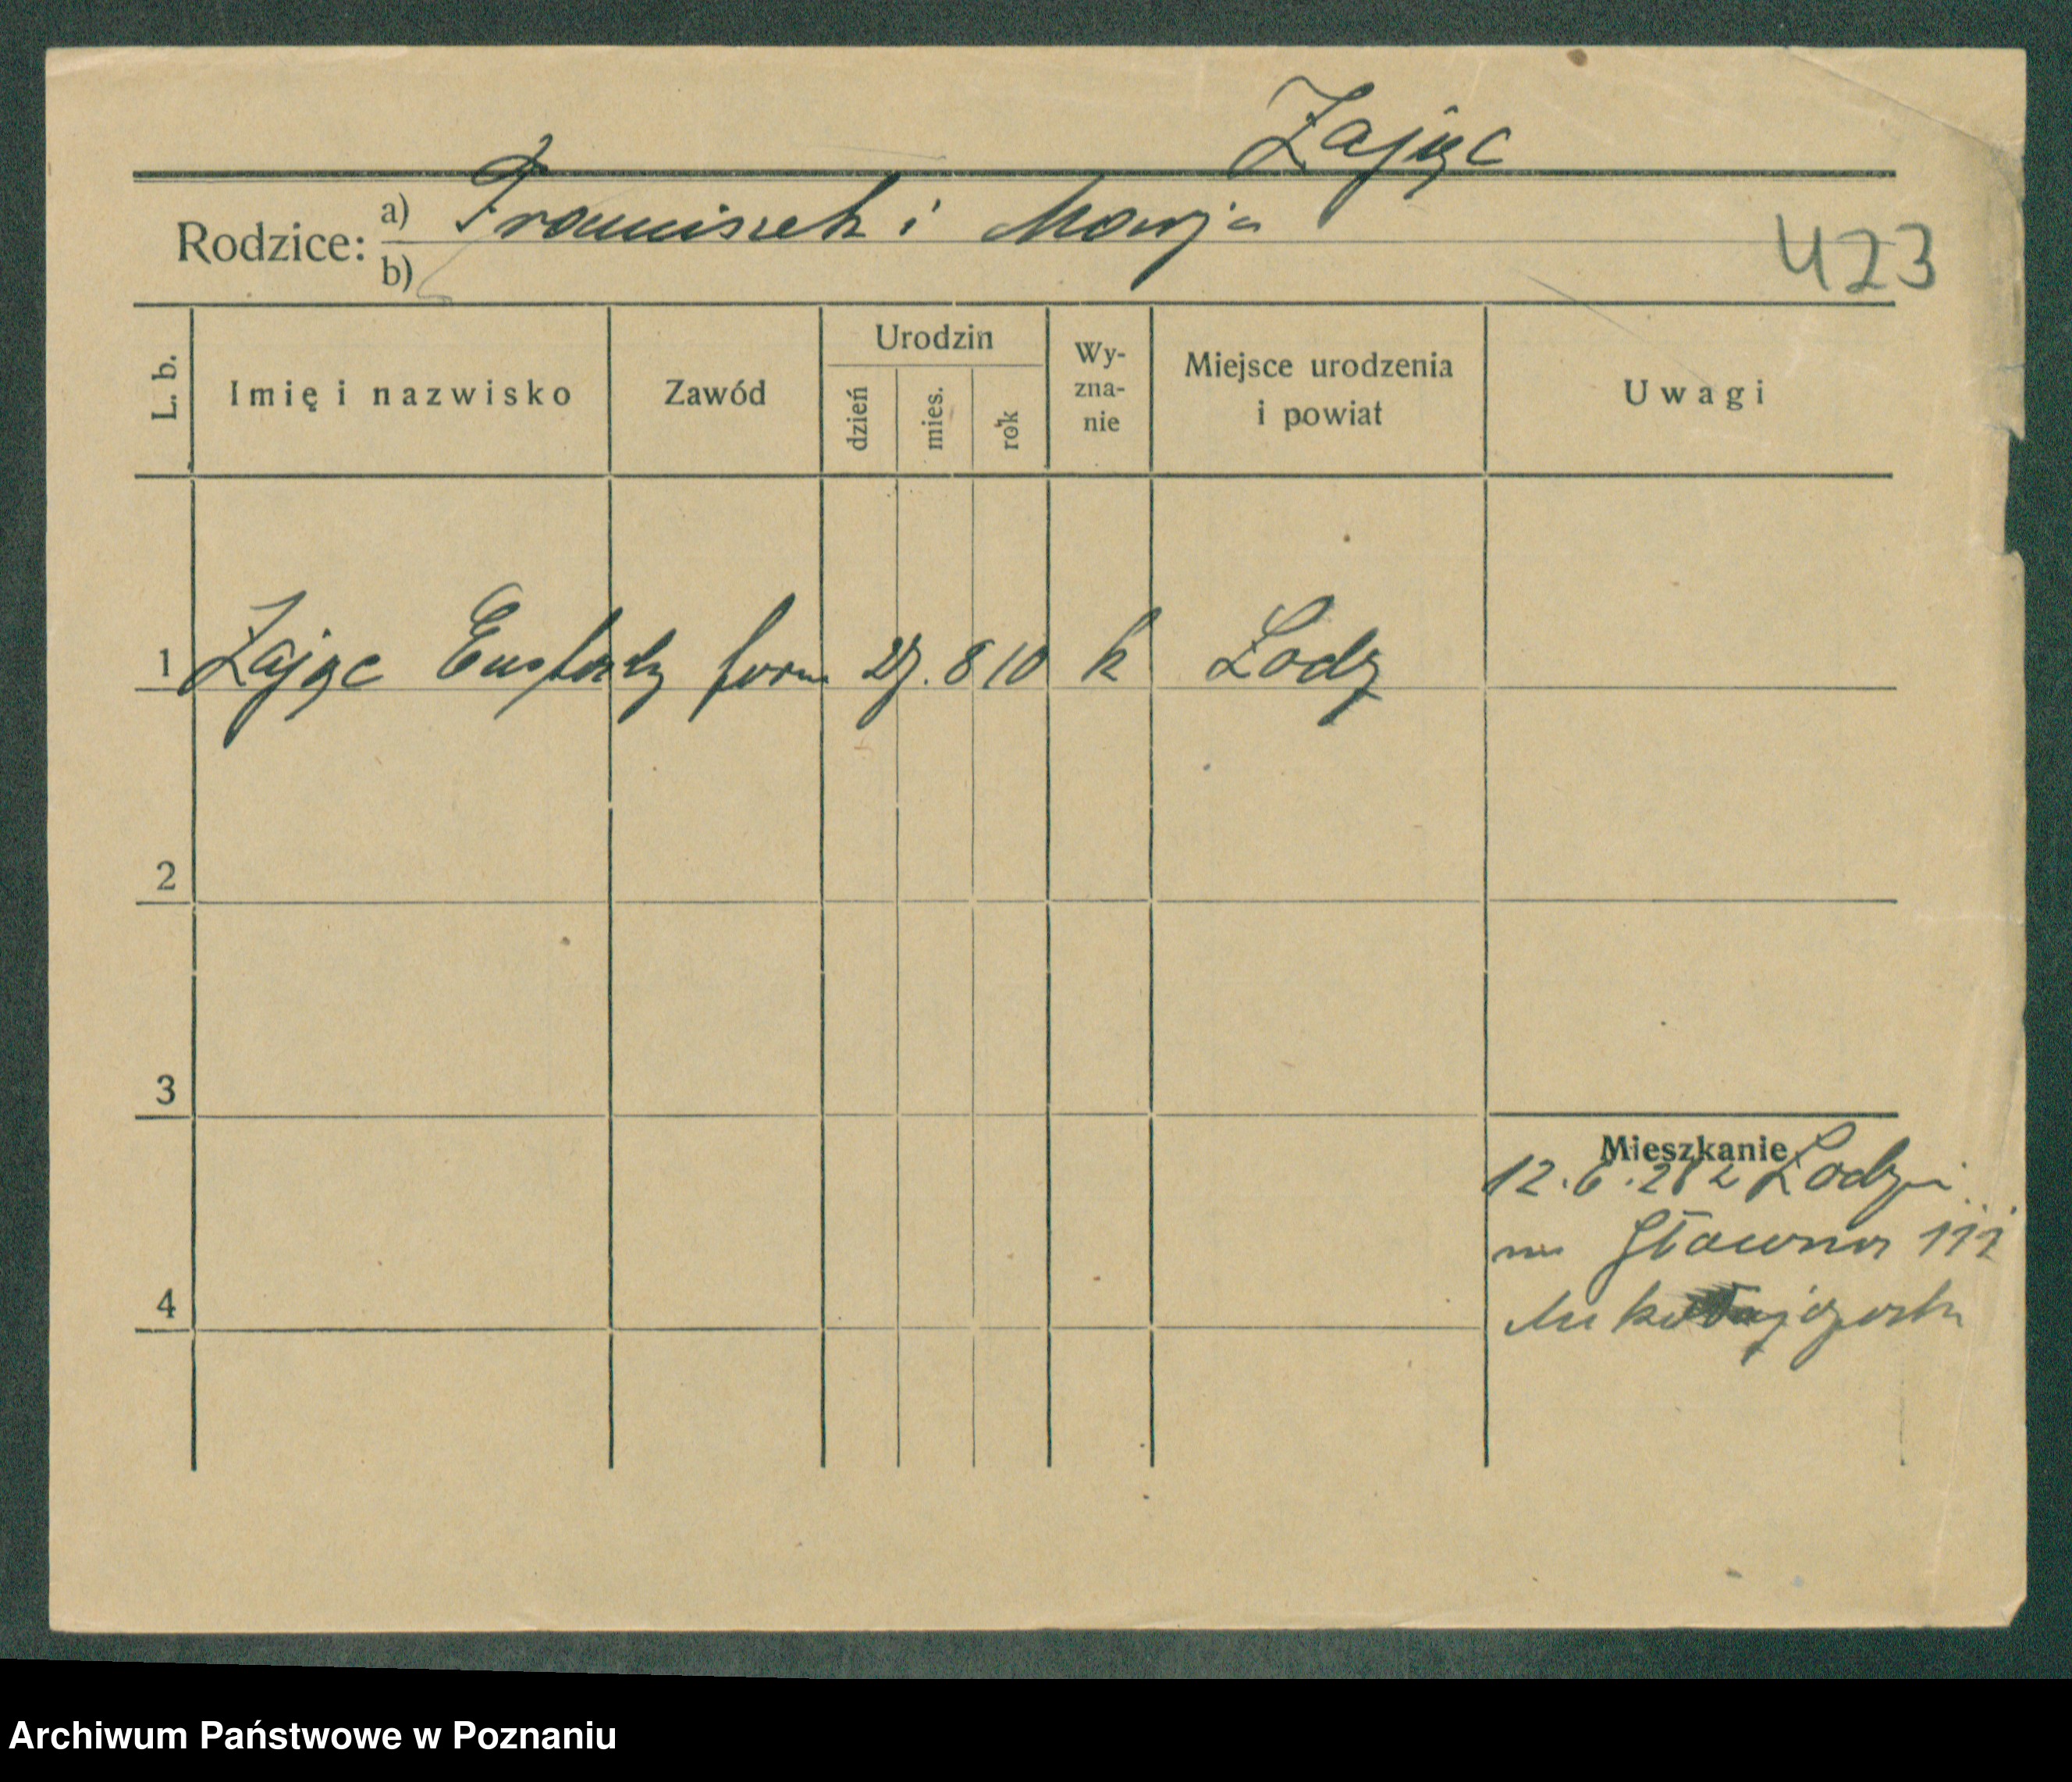 Zając
Rodzice: a) Franciszek i Marja
b)
423
L. b. Imię i nazwisko Zawód Urodzin dzień mies. rok Wy-zna-nie Miejsce urodzenia i powiat Uwagi
1 Zając Eustachy form 27. 8 10 k Łodz
2
3
Mieszkanie
12.6.28 z Łodzi
4
na Główna
Archiwum Państwowe w Poznaniu